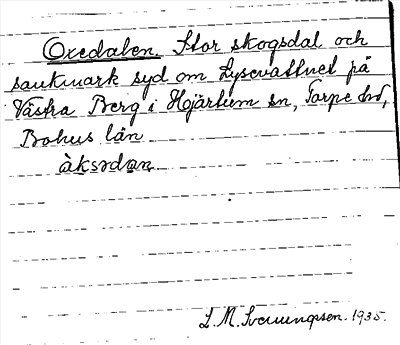 Oxedalen. Stor skogsdal och
sankmark syd om Lysevattnet på
Västra Berg i Hjärtum sn, Torpe hd,
Bohus län
àksədan
L. M. Svenungsen. 1935.